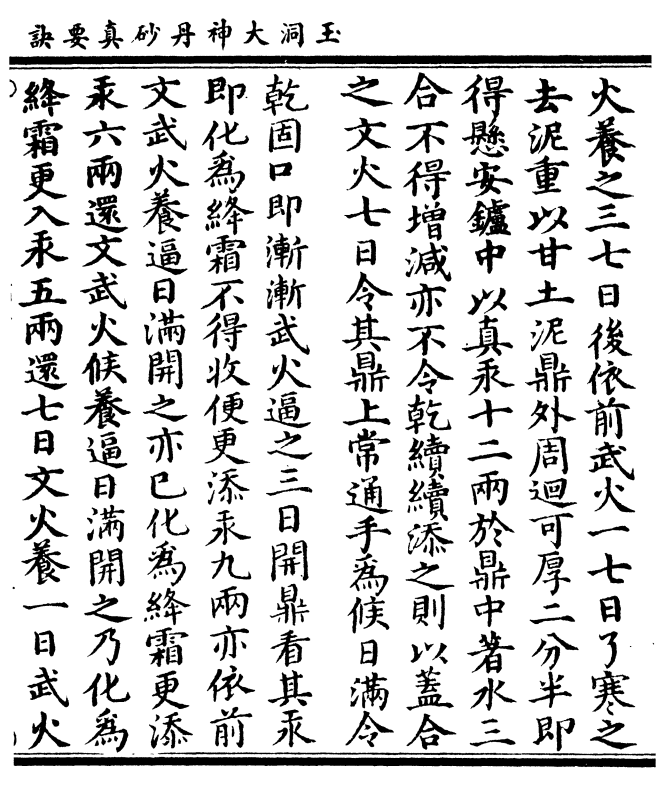 玉洞大神丹砂真要訣
火養之三七日後依前武火一七日了寒之
去泥重以甘土泥鼎外周迴可厚二分半即
得懸安鑪中以真汞十二兩於鼎中著水三
合不得增減亦不令乾續續添之則以蓋合
之文火七日令其鼎上常通手爲候日滿令
乾固口即漸漸武火逼之三日開鼎看其汞
即化爲絳霜不得收便更添汞九兩亦依前
文武火養逼日滿開之亦已化爲絳霜更添
汞六兩還文武火候養逼日滿開之乃化爲
絳霜更入汞五兩還七日文火養一日武火